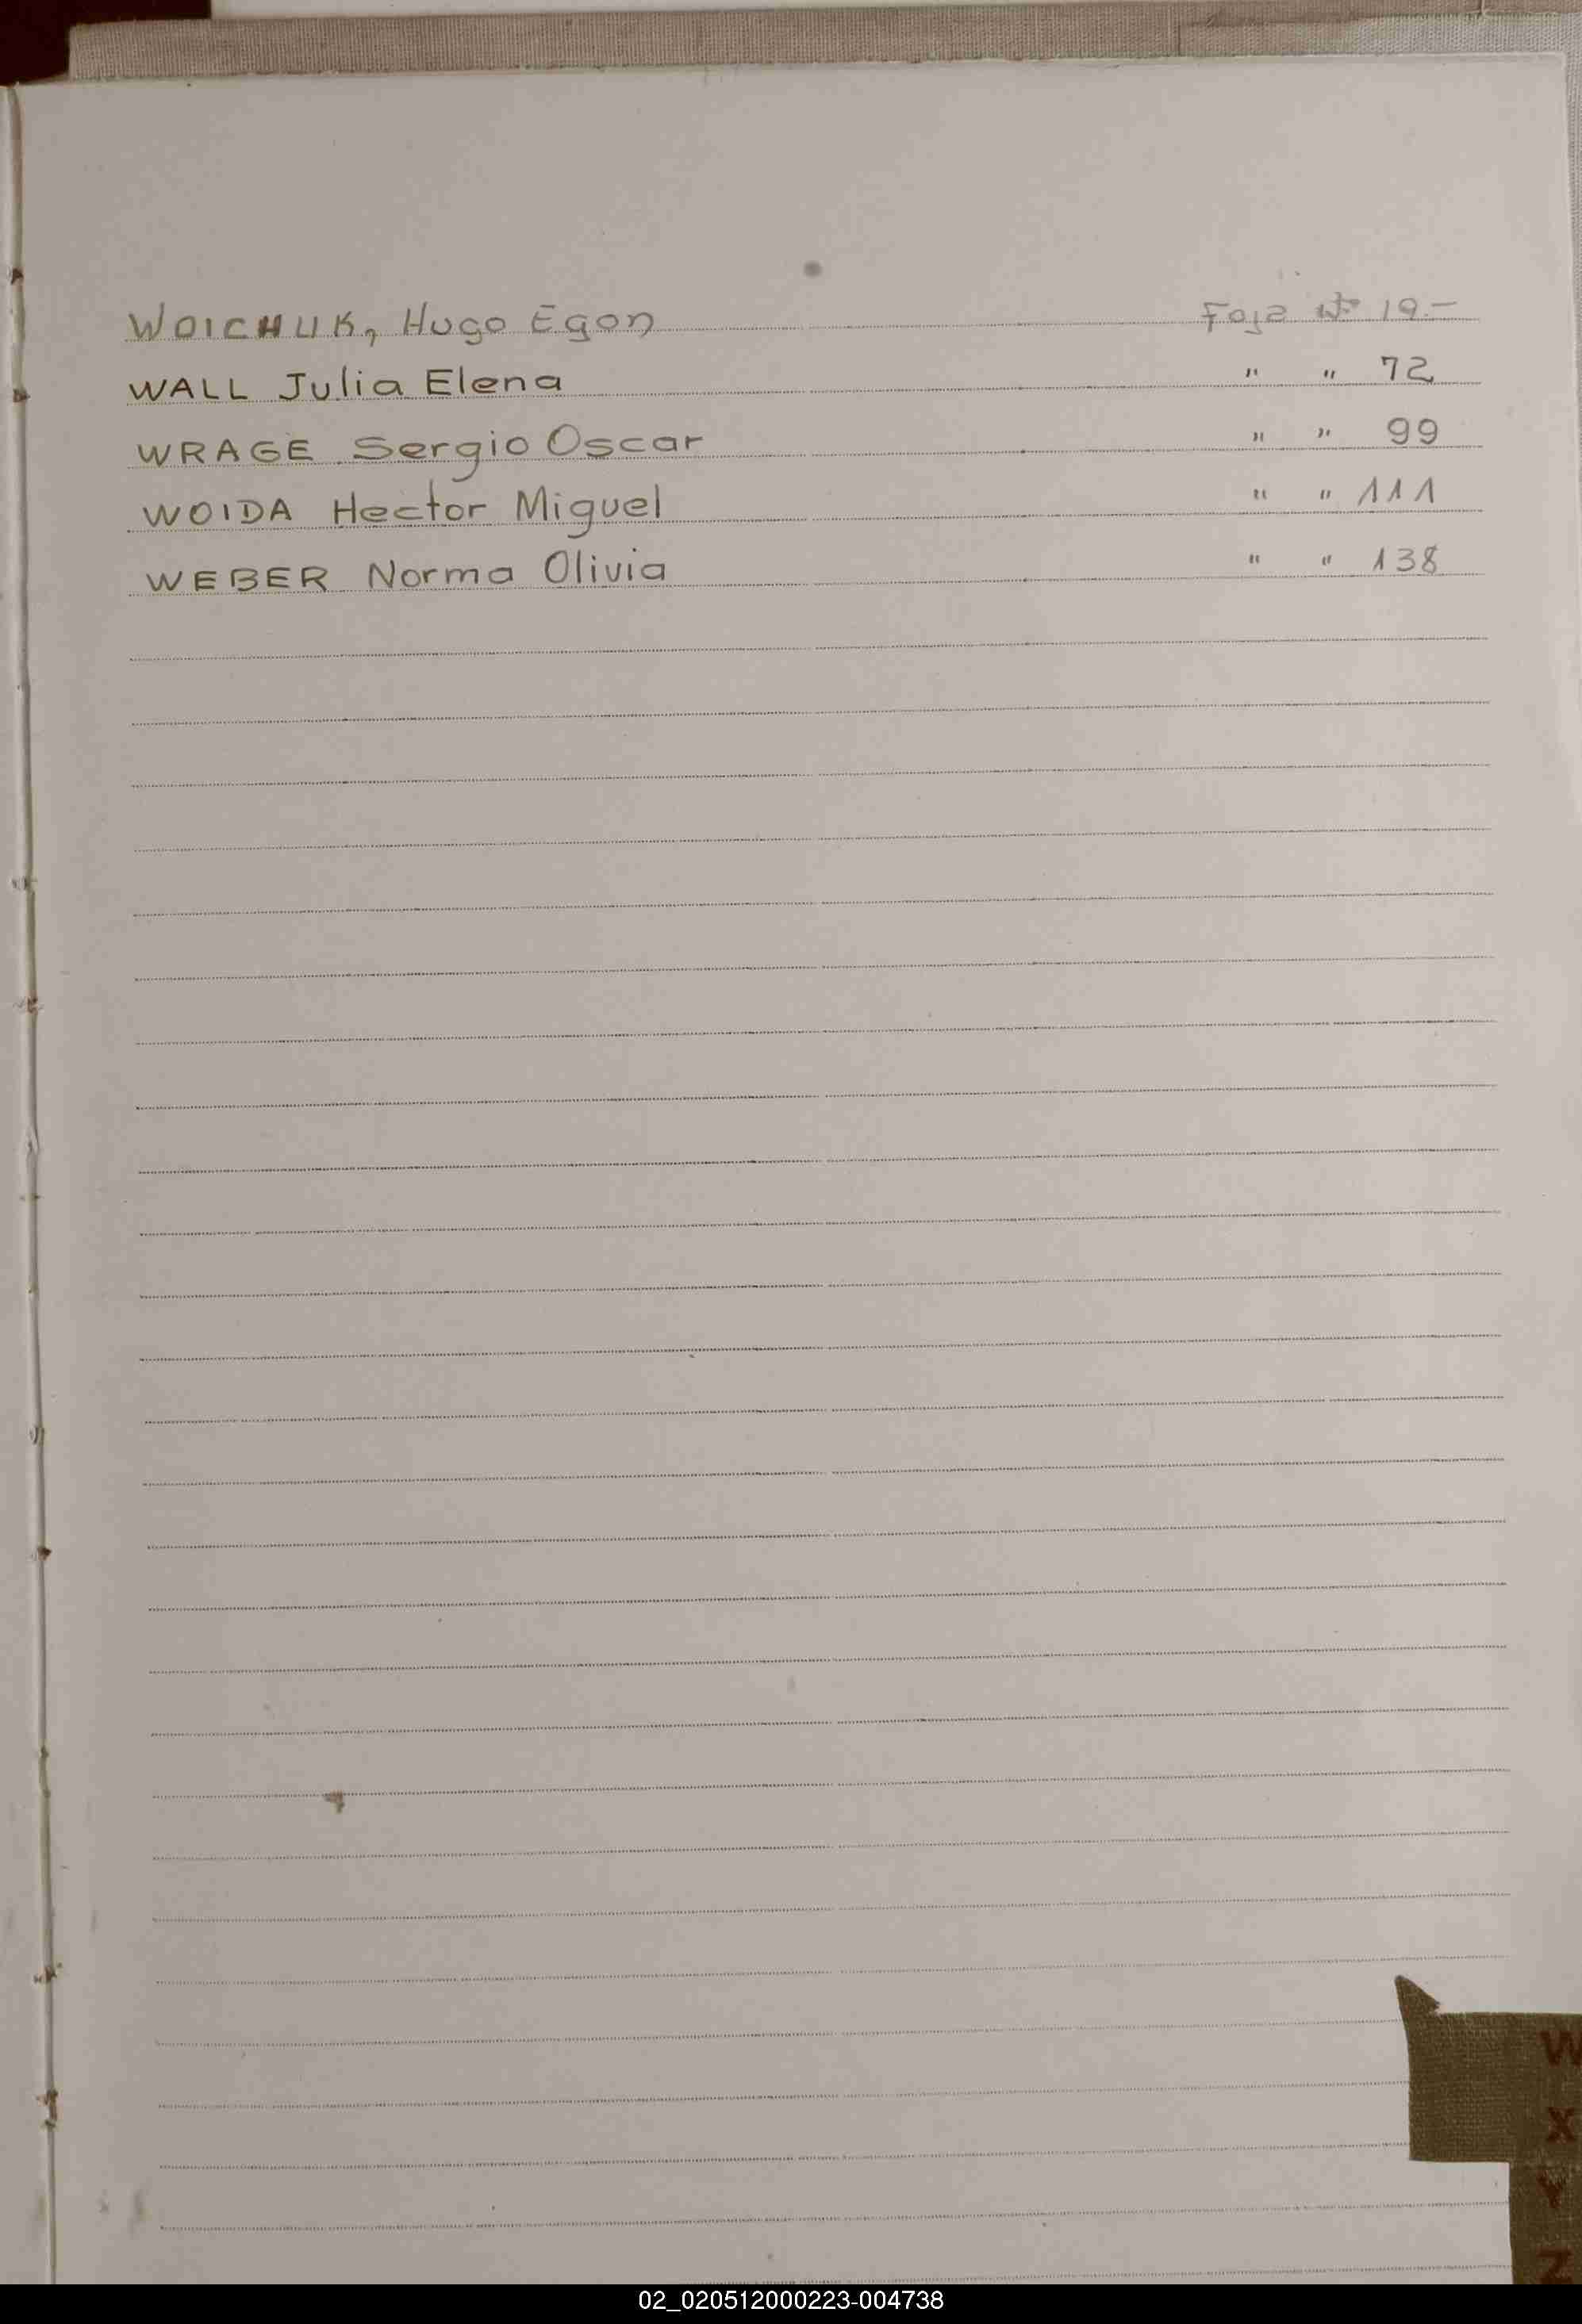 WOICHUK, Hugo Egon Foja Nº 19.-
WALL Julia Elena " " 72
WRAGE Sergio Oscar " " 99
WOIDA Hector Miguel " " 111
WEBER Norma Olivia " " 138
W
X
Y
Z
02_020512000223-004738